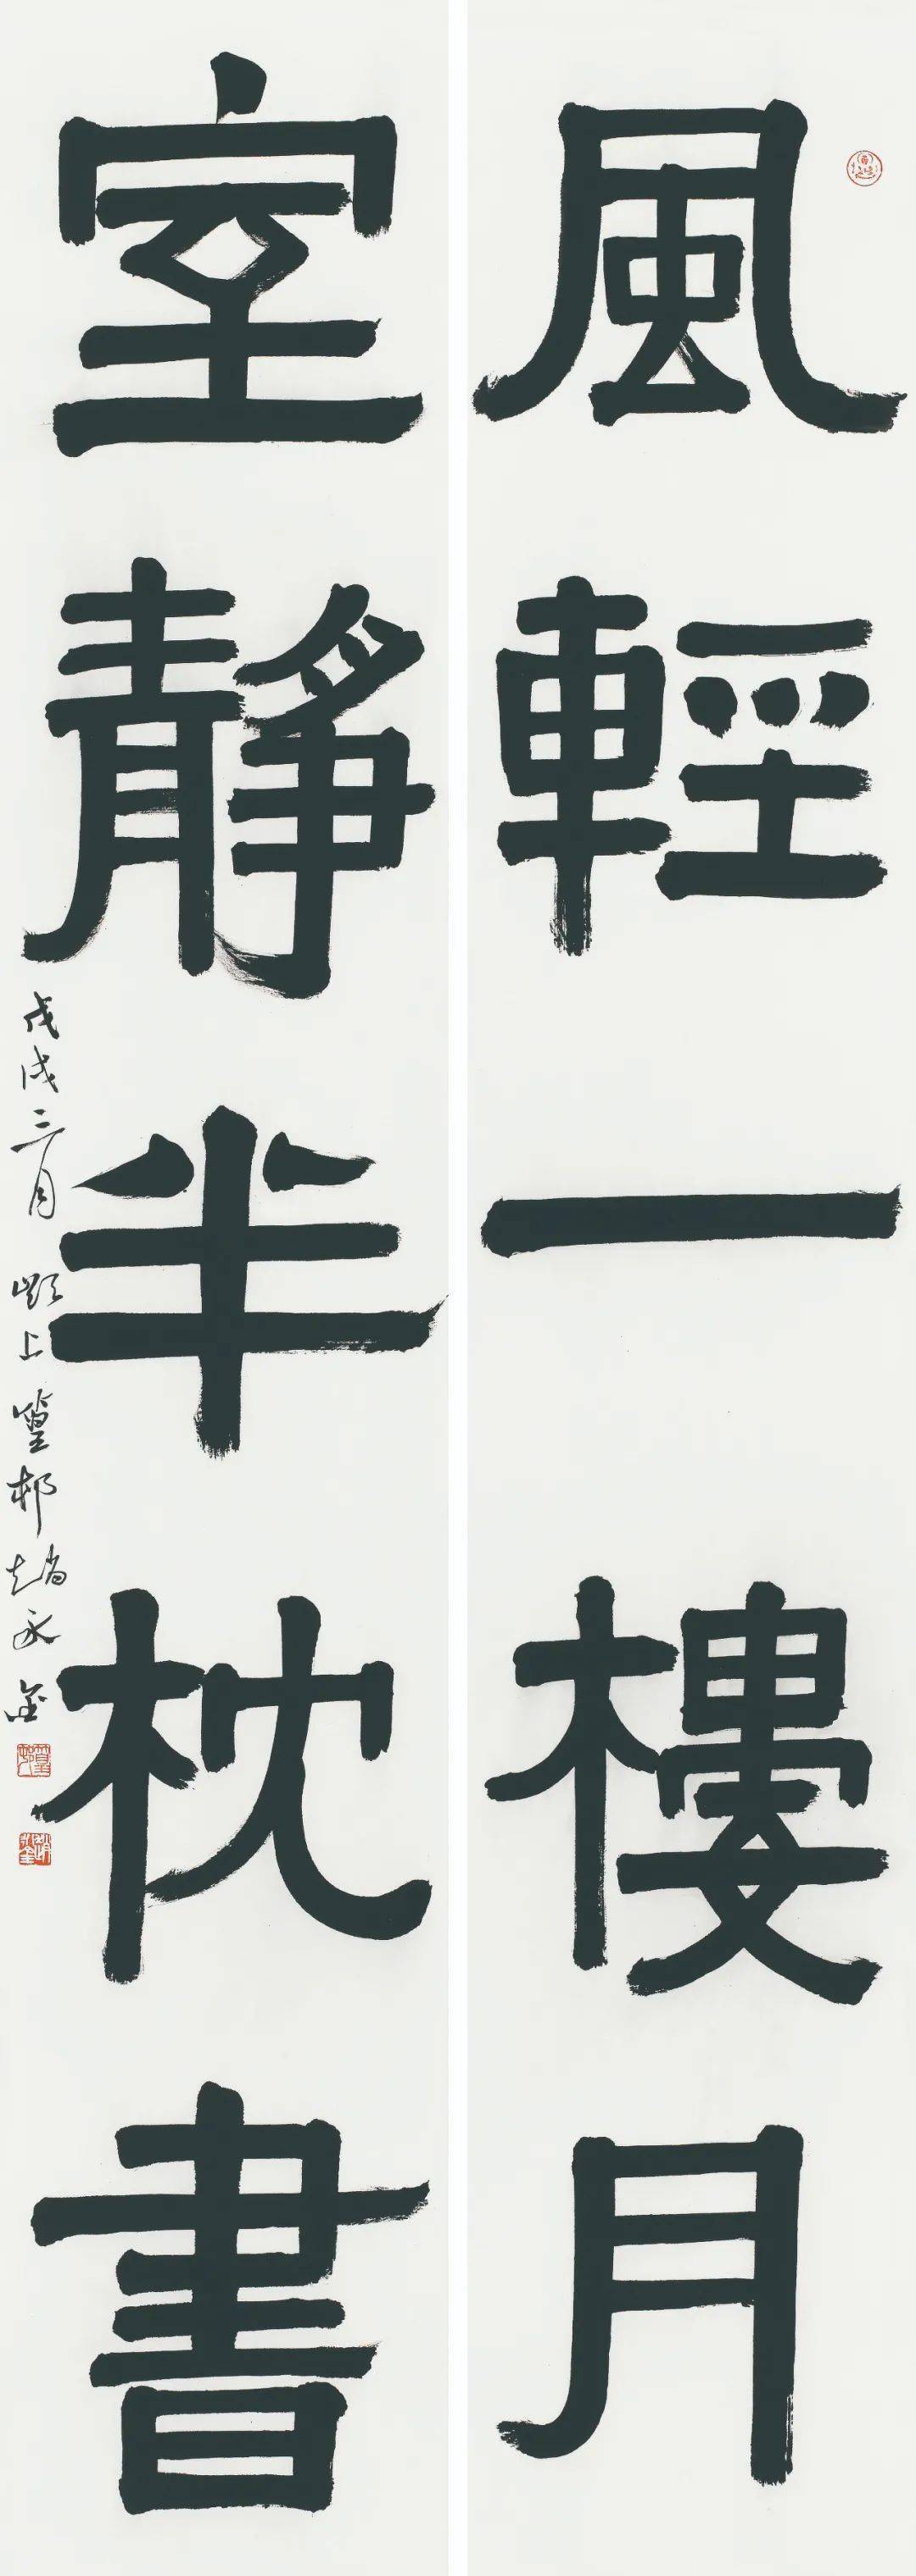 風輕一樓月
室靜半枕書
戊戌三月 上 邨趙永金